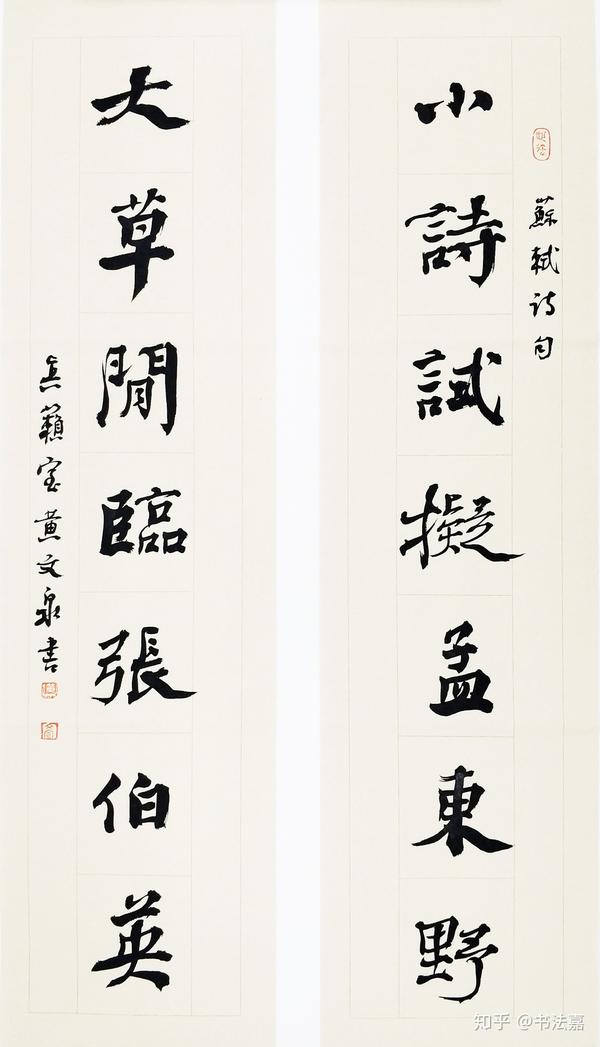 蘇軾诗句
小詩試擬孟東野
大草閒臨張伯英
真籟室黄文泉書
知乎 @书法嘉